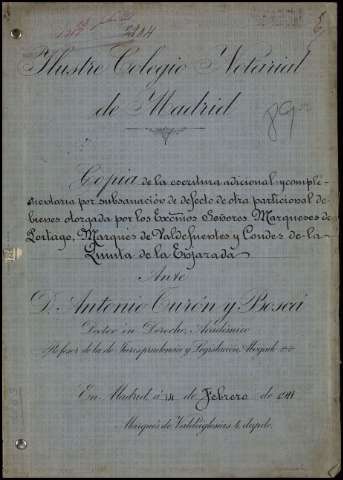 2814
Ilustre Colegio Notarial
de Madrid
89
Copia de la escritura adicional y comple-
mentaria por subsanación de defecto de otra particional de
bienes otorgada por los Excmos Señores Marqueses de
Portago, Marqués de Valdefuentes y Condes de la
Quinta de la Enjarada
Ante
D. Antonio Turón y Boscá
Doctor en Derecho, Académico
Profesor de la de Jurisprudencia y Legislación, Abogado
En Madrid á 14 de Febrero de 1911
Marqués de Valdeiglesias 4, dupdo.